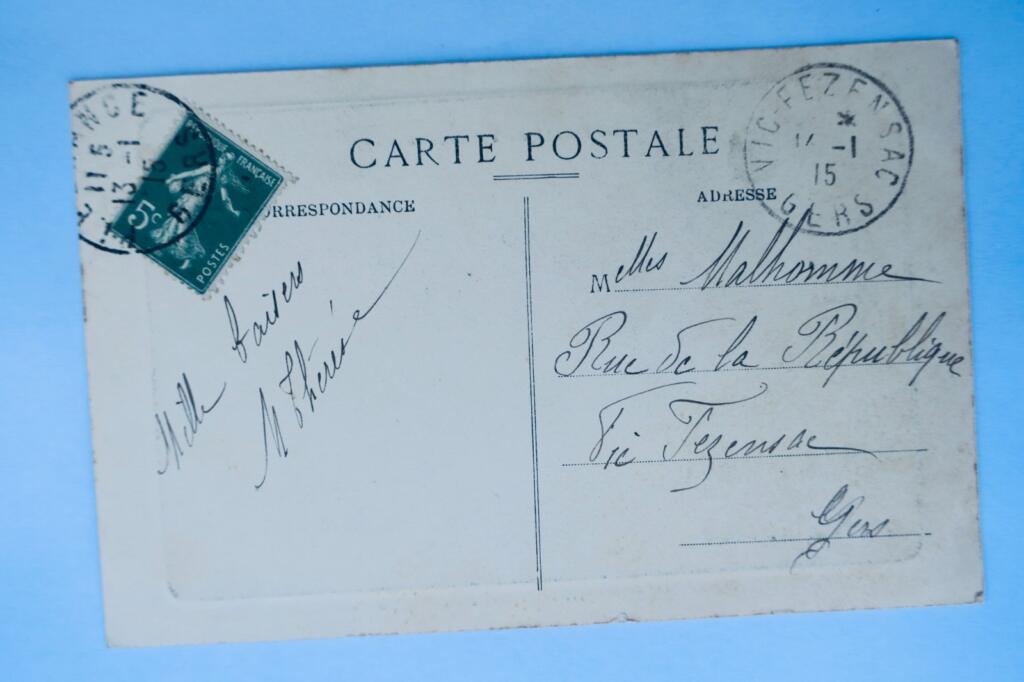 CARTE POSTALE
ORRESPONDANCE
ADRESSE
FRANÇAISE
5c
POSTES
11 5
13 -1
15
GERS
VIC-FEZENSAC
*
14 -1
15
GERS
Mille baisers
M Thérèse
Melles Malhomme
Rue de la République
Vic Fezensac
Gers